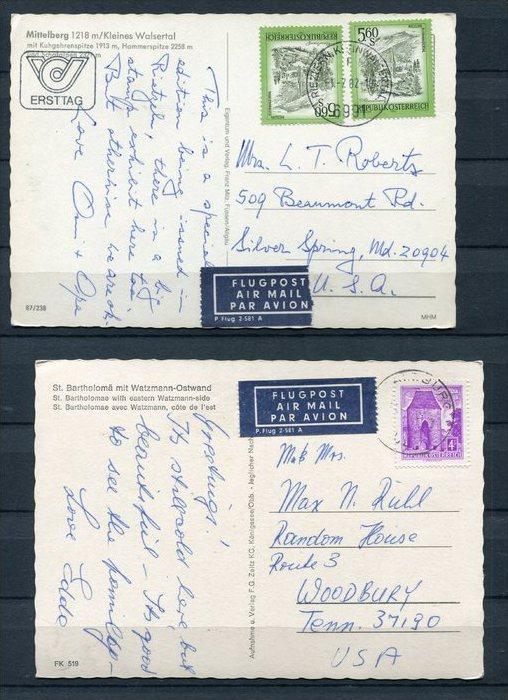 Mittelberg 1218 m/Kleines Walsertal
mit Kuhgehrenspitze 1913 m, Hammerspitze 2258 m
ERSTTAG
This is a special
edition being issued in
Riezlern, there is a big
stamp exhibit here too.
But otherwise be a rock.
Love Omi + Opa
87/238
Eigentum und Verlag Franz Milz, Füssen/Allgäu
5,60
S
REPUBLIK ÖSTERREICH
5,60
S
REPUBLIK ÖSTERREICH
6991
Mrs. L. T. Roberts
509 Beaumont Rd.
Silver Spring, Md. 20904
U. S. A.
FLUGPOST
AIR MAIL
PAR AVION
P. Flug 2-581 A
MHM
St. Bartholomä mit Watzmann-Ostwand
St. Bartholomae with eastern Watzmann-side
St. Bartholomae avec Watzmann, côte de l'est
Greetings!
Its still cold here but
beautiful - Its good
to see the family -
Love
FK 519
Aufnahme u. Verlag F.G. Zeitz KG, Königssee/Obb. - Jeglicher
FLUGPOST
AIR MAIL
PAR AVION
P. Flug 2-581 A
S
4
REPUBLIK ÖSTERREICH
M&M Mrs.
Max N. Ruhl
Random House
Route 3
WOODBURY
Tenn. 37190
USA